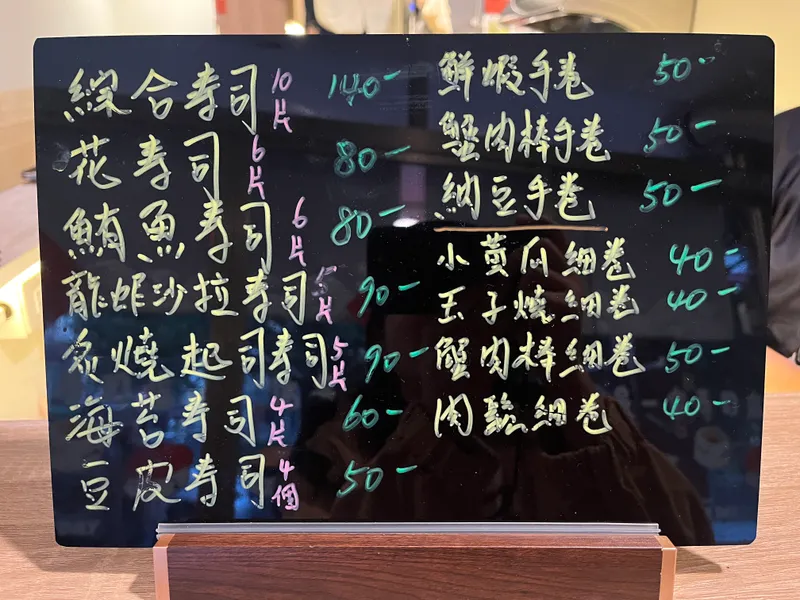 綜合寿司10片 140-
花寿司6片 80-
鮪魚寿司6片 80-
龍蝦沙拉寿司5片 90-
炙燒起司寿司5片 90-
海苔寿司4片 60-
豆皮寿司4個 50-
鮮蝦手卷 50-
蟹肉棒手卷 50-
納豆手卷 50-
小黄瓜細卷 40-
玉子燒細卷 40-
蟹肉棒細卷 50-
肉鬆細卷 40-